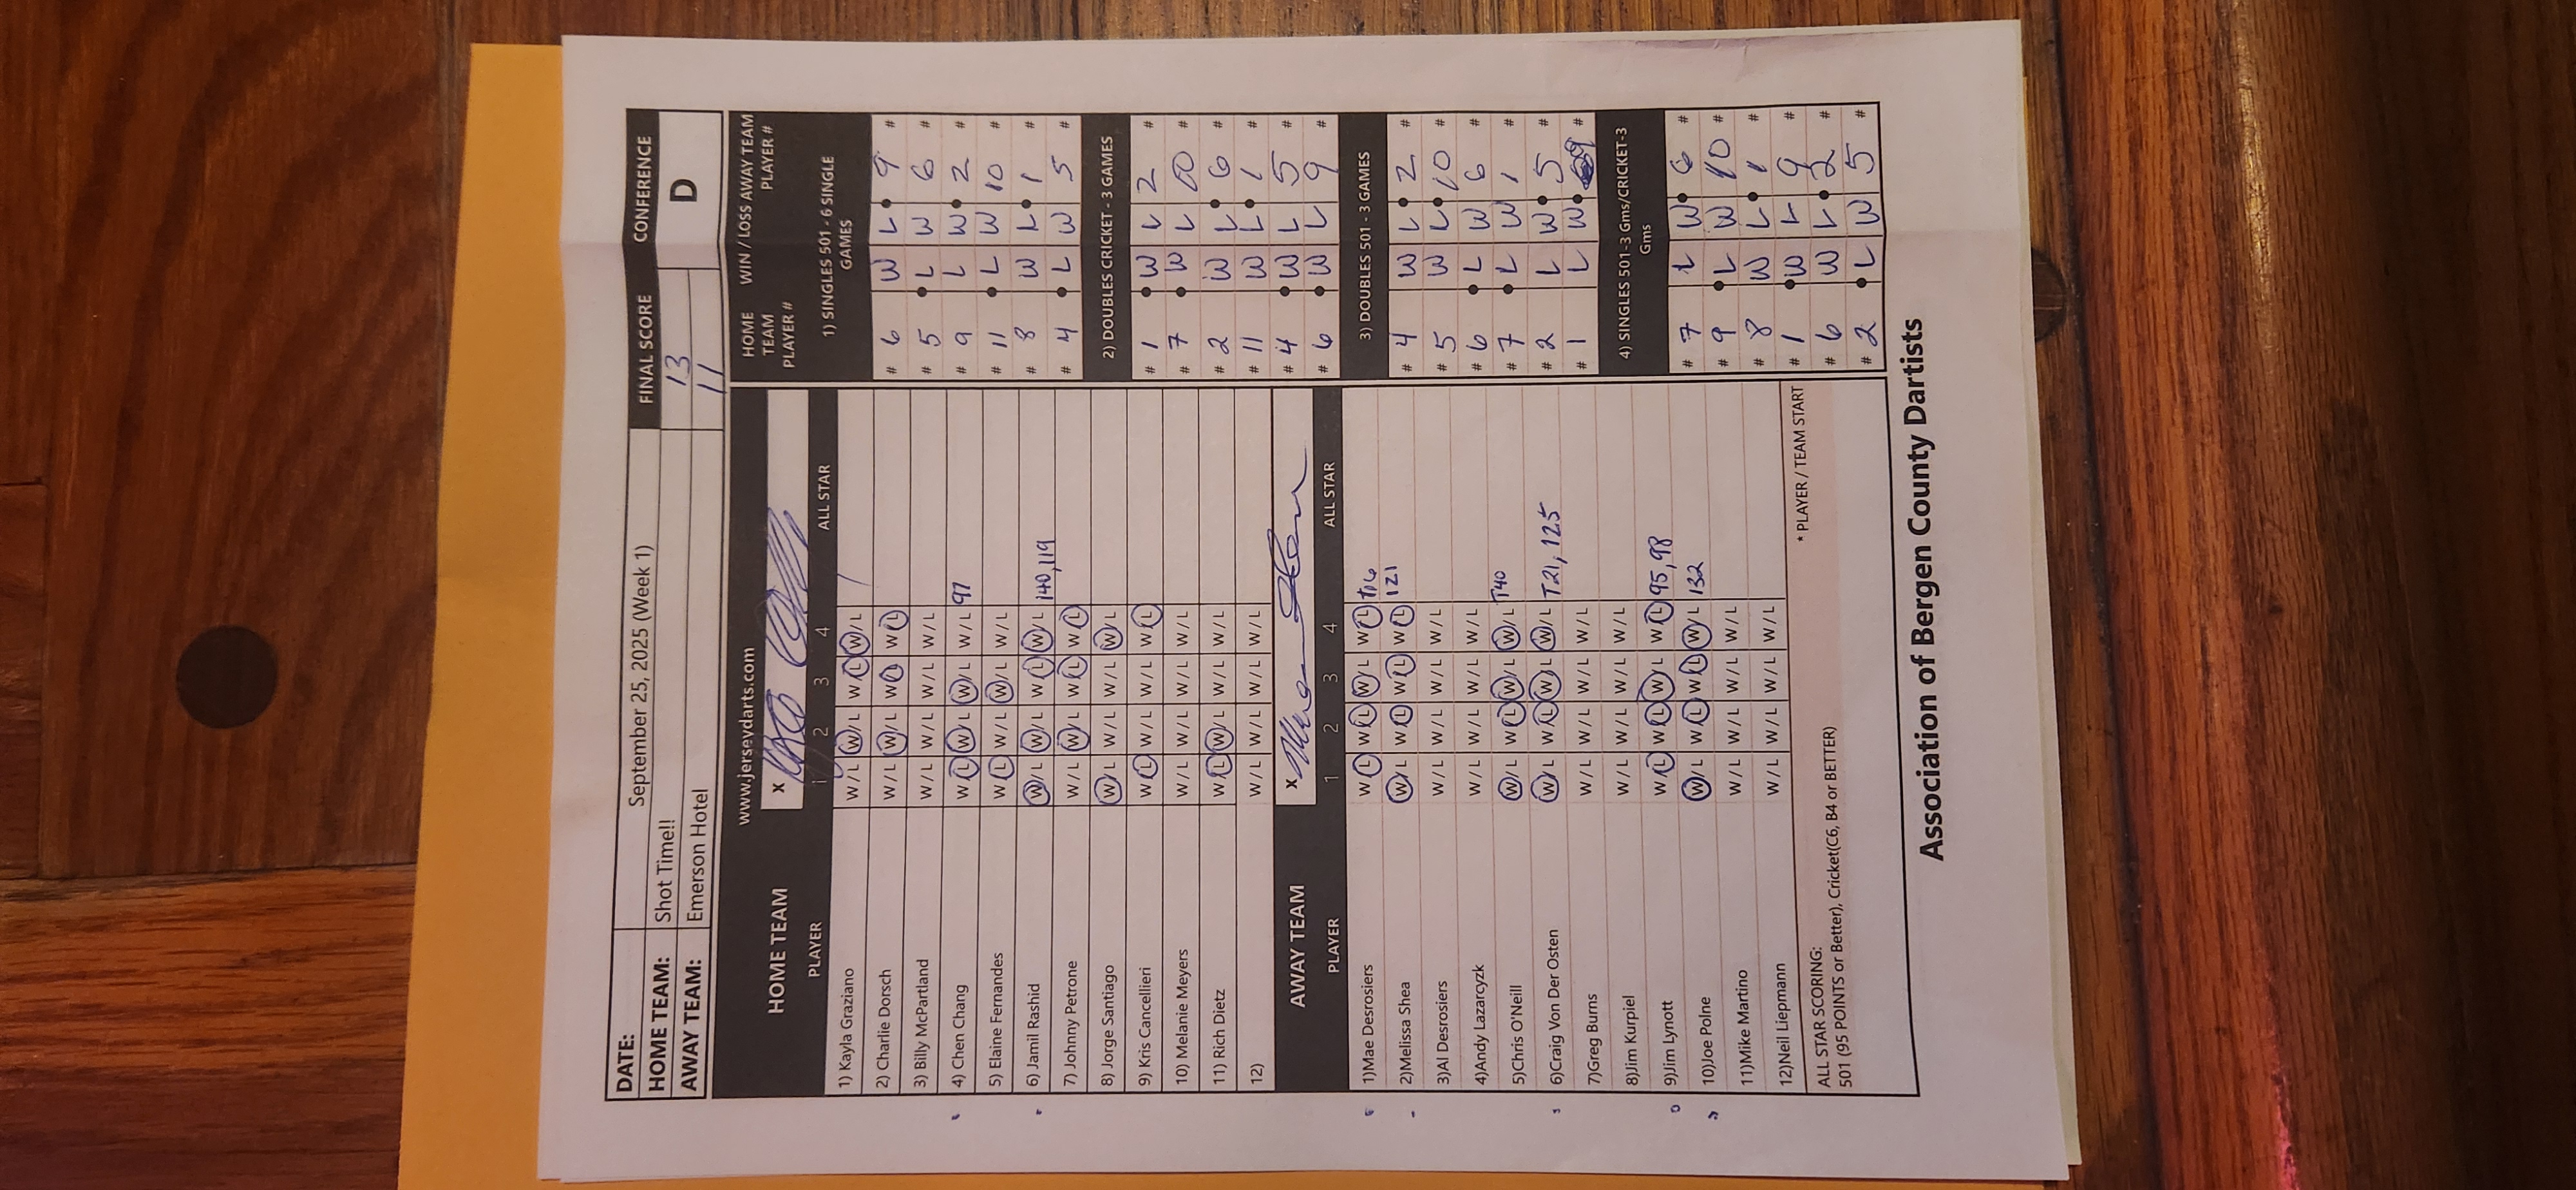 DATE: September 25, 2025 (Week 1) FINAL SCORE CONFERENCE
HOME TEAM: Shot Time!! 13 D
AWAY TEAM: Emerson Hotel 11
www.jerseydarts.com
HOME TEAM x
PLAYER 1 2 3 4 ALL STAR
1) Kayla Graziano W / L W / L W / L W / L
2) Charlie Dorsch W / L W / L W / L W / L
3) Billy McPartland W / L W / L W / L W / L
4) Chen Chang W / L W / L W / L W / L 97
5) Elaine Fernandes W / L W / L W / L W / L
6) Jamil Rashid W / L W / L W / L W / L 140, 119
7) Johnny Petrone W / L W / L W / L W / L
8) Jorge Santiago W / L W / L W / L W / L
9) Kris Cancellieri W / L W / L W / L W / L
10) Melanie Meyers W / L W / L W / L W / L
11) Rich Dietz W / L W / L W / L W / L
12) W / L W / L W / L W / L
AWAY TEAM x
PLAYER 1 2 3 4 ALL STAR
1)Mae Desrosiers W / L W / L W / L W / L T16
2)Melissa Shea W / L W / L W / L W / L 121
3)Al Desrosiers W / L W / L W / L W / L
4)Andy Lazarcyzk W / L W / L W / L W / L
5)Chris O'Neill W / L W / L W / L W / L T40
6)Craig Von Der Osten W / L W / L W / L W / L T21, 125
7)Greg Burns W / L W / L W / L W / L
8)Jim Kurpiel W / L W / L W / L W / L
9)Jim Lynott W / L W / L W / L W / L 95, 98
10)Joe Polne W / L W / L W / L W / L 132
11)Mike Martino W / L W / L W / L W / L
12)Neil Liepmann W / L W / L W / L W / L
ALL STAR SCORING: * PLAYER / TEAM START
501 (95 POINTS or Better), Cricket(C6, B4 or BETTER)
HOME TEAM PLAYER # WIN / LOSS AWAY TEAM PLAYER #
1) SINGLES 501 - 6 SINGLE GAMES
# 6 W L 9 #
# 5 L W 6 #
# 9 L W 2 #
# 11 L W 10 #
# 8 W L 1 #
# 4 L W 5 #
2) DOUBLES CRICKET - 3 GAMES
# 1 W L 2 #
# 7 W L 10 #
# 2 W L 6 #
# 11 W L 1 #
# 4 W L 5 #
# 6 W L 9 #
3) DOUBLES 501 - 3 GAMES
# 4 W L 2 #
# 5 W L 10 #
# 6 L W 6 #
# 7 L W 1 #
# 2 L W 5 #
# 1 L W 9 #
4) SINGLES 501 -3 Gms/CRICKET-3 Gms
# 7 L W 6 #
# 9 L W 10 #
# 8 W L 1 #
# 1 W L 9 #
# 6 W L 2 #
# 2 L W 5 #
Association of Bergen County Dartists